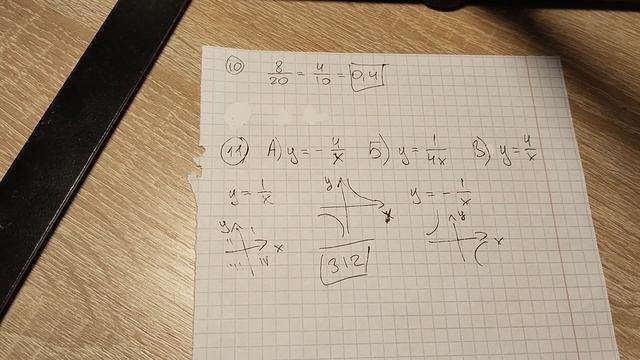 10 8/20 = 4/10 = 0,4
11 А) y = - 4/x Б) y = 1/4x В) y = 4/x
y = 1/x y x y = - 1/x
y I II III IV x y x
312